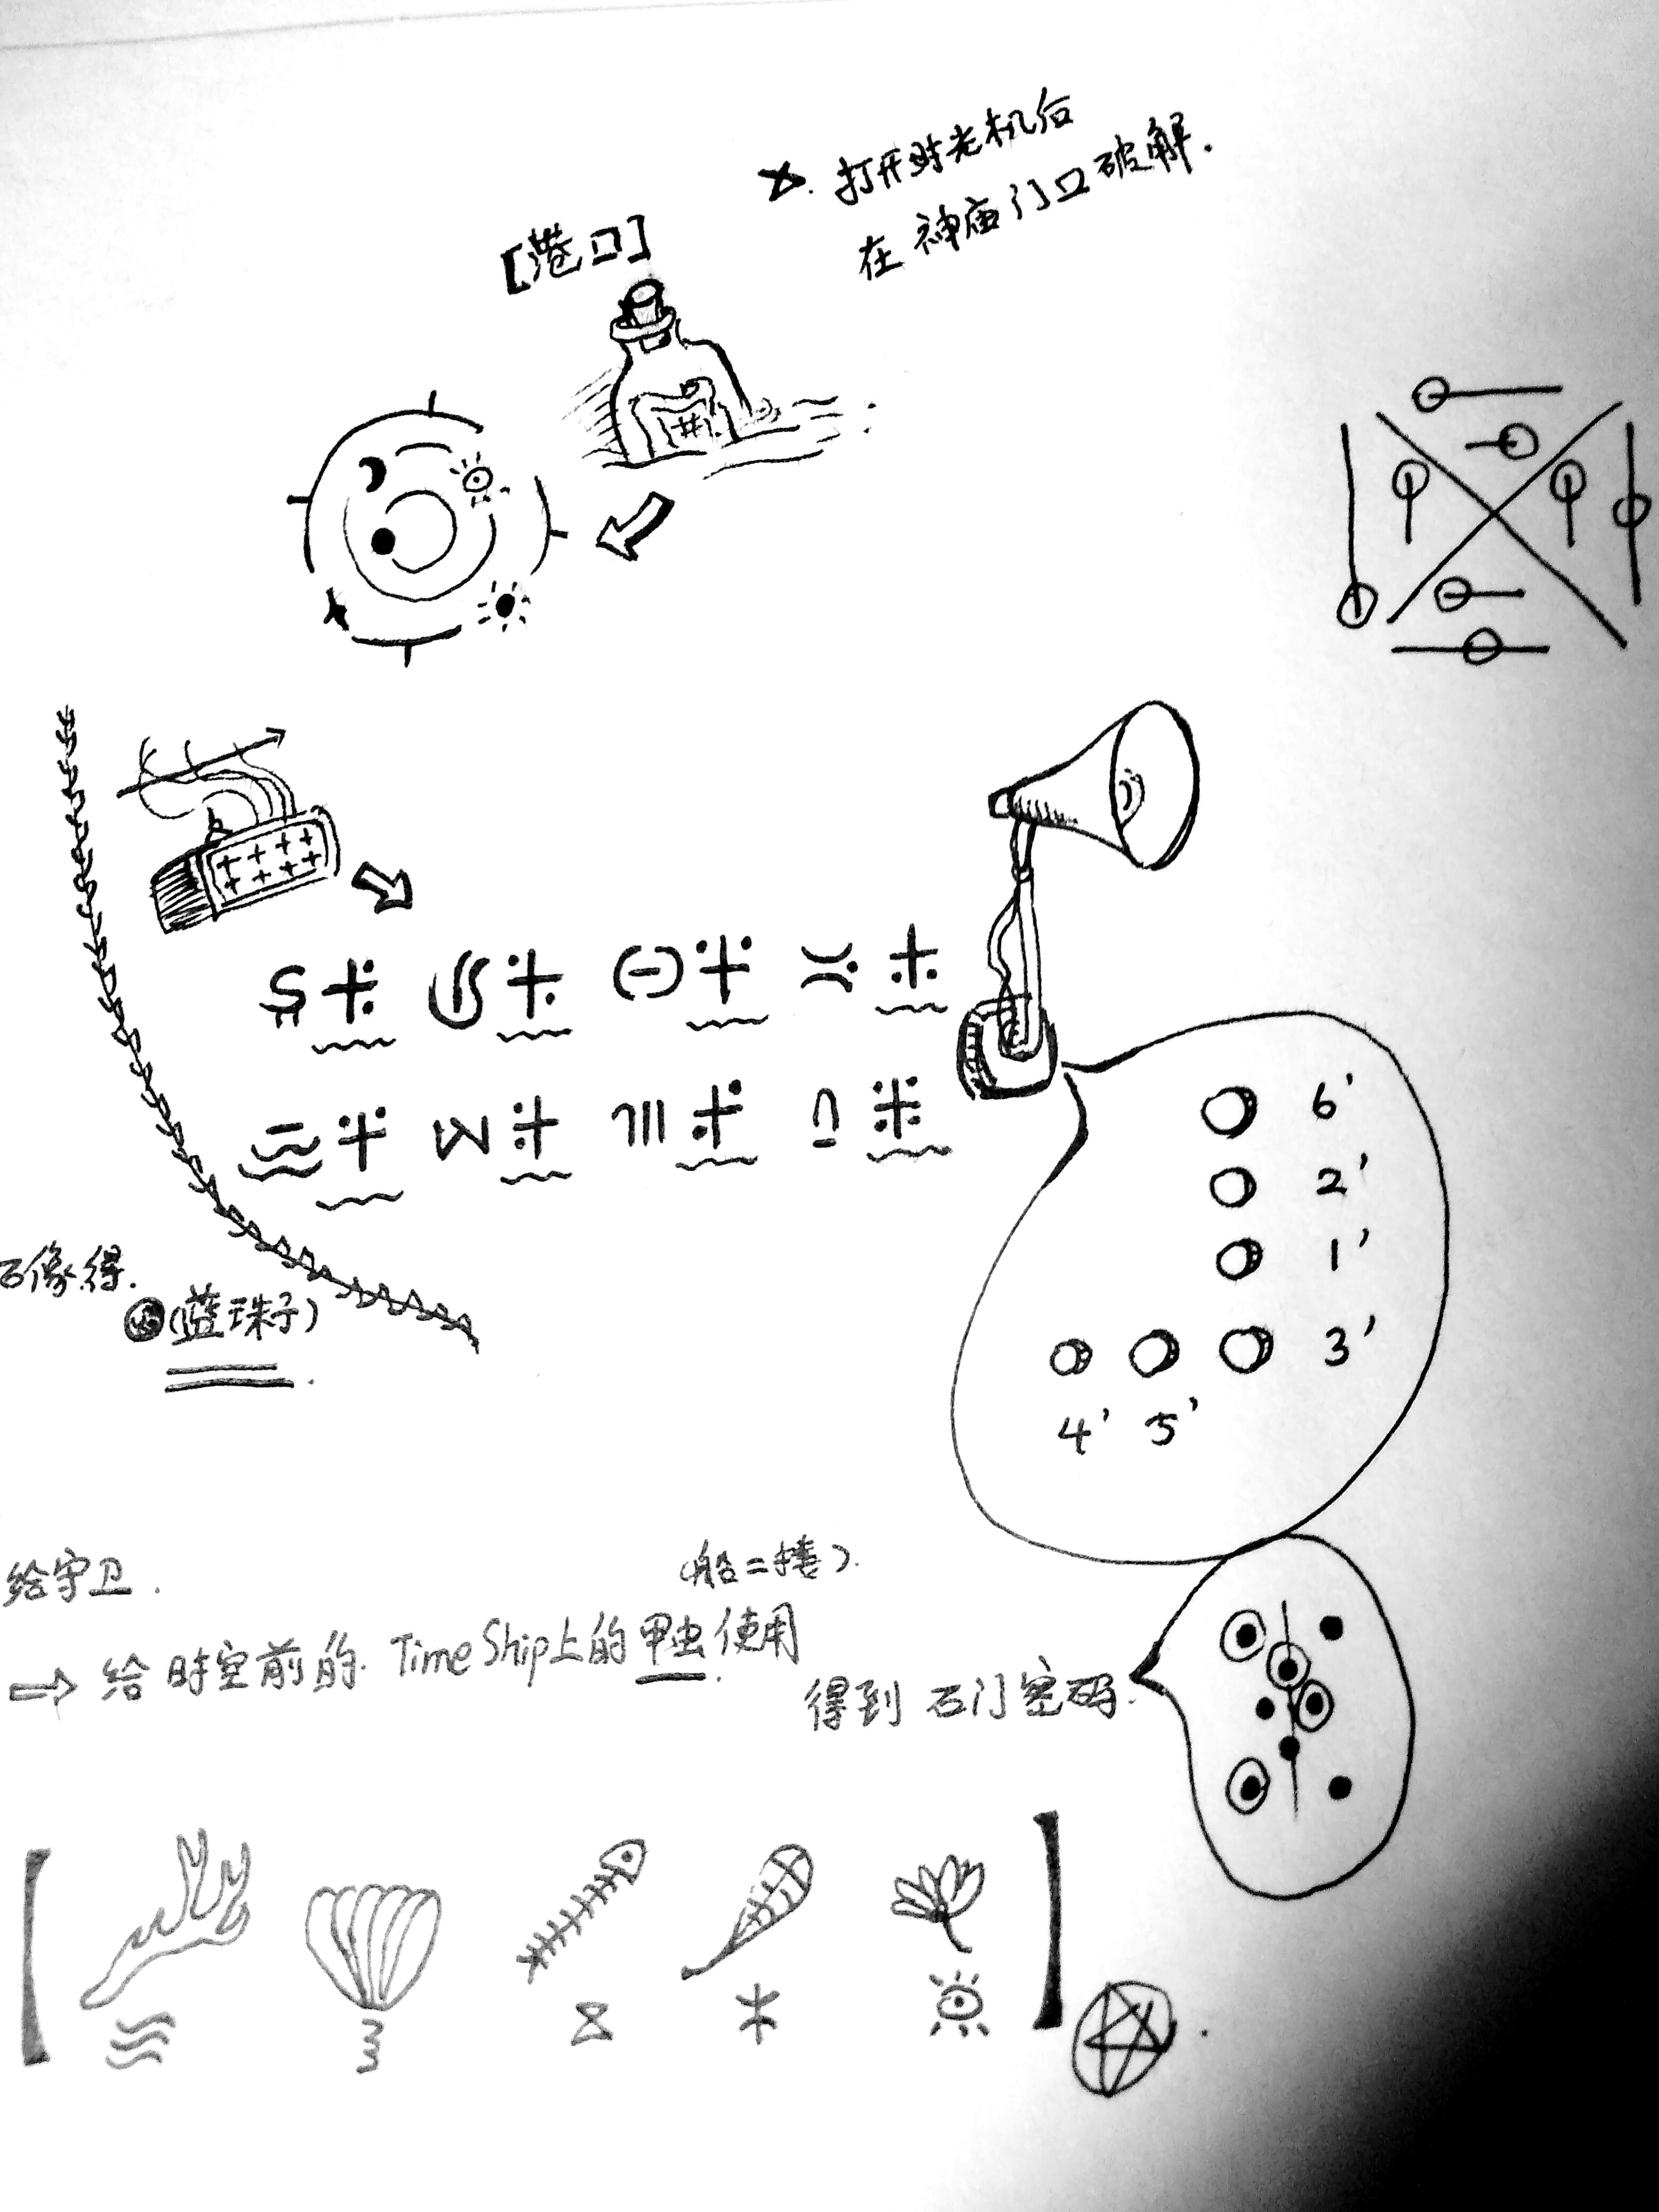 ☆. 打开时光机后
在神庙门口破解.
[港口]
#
6'
2'
1'
3'
4' 5'
石像得.
(蓝珠子)
给守卫.
(船二楼).
⇒ 给时空前的. Time Ship上的甲虫使用
得到 石门密码.